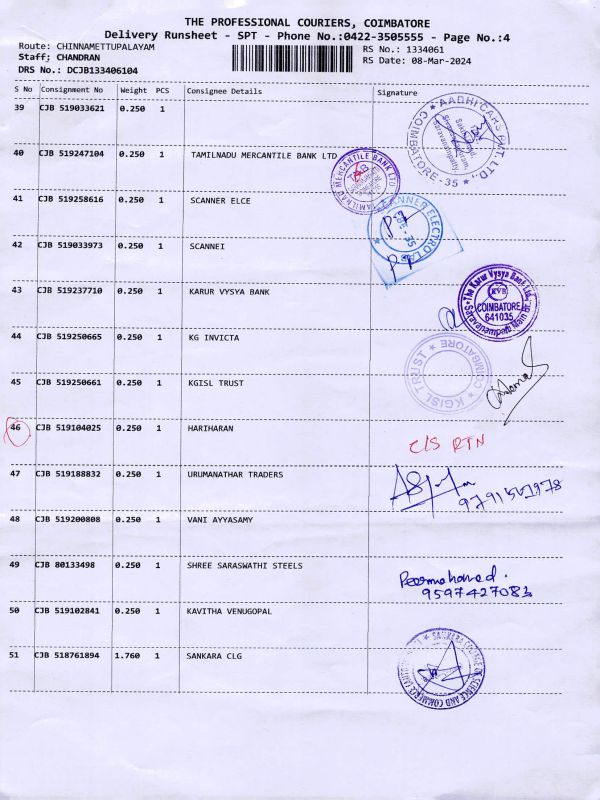 THE PROFESSIONAL COURIERS, COIMBATORE
Delivery Runsheet - SPT - Phone No.:0422-3505555 - Page No.:4
Route: CHINNAMETTUPALAYAM RS No.: 1334061
Staff: CHANDRAN RS Date: 08-Mar-2024
DRS No.: DCJB133406104
S No Consignment No Weight PCS Consignee Details Signature
39 CJB 519033621 0.250 1
AADHI CARS PVT. LTD., COIMBATORE-35
Saravanampatty,
40 CJB 519247104 0.250 1 TAMILNADU MERCANTILE BANK LTD
TAMILNAD MERCANTILE BANK LTD
41 CJB 519258616 0.250 1 SCANNER ELCE
SCANNER ELECTRO
CBE - 35
42 CJB 519033973 0.250 1 SCANNEI
43 CJB 519237710 0.250 1 KARUR VYSYA BANK
The Karur Vysya Bank Ltd.,
KVB
COIMBATORE
641035
Saravanampatti Main Br.
44 CJB 519250665 0.250 1 KG INVICTA
45 CJB 519250661 0.250 1 KGISL TRUST
KGISL TRUST COIMBATORE
46 CJB 519104025 0.250 1 HARIHARAN
C/S RTN
47 CJB 519188832 0.250 1 URUMANATHAR TRADERS
48 CJB 519200808 0.250 1 VANI AYYASAMY
49 CJB 80133498 0.250 1 SHREE SARASWATHI STEELS
Peermohamed.
9597427083
50 CJB 519102841 0.250 1 KAVITHA VENUGOPAL
51 CJB 518761894 1.760 1 SANKARA CLG
SANKARA COLLEGE OF SCIENCE AND COMMERCE